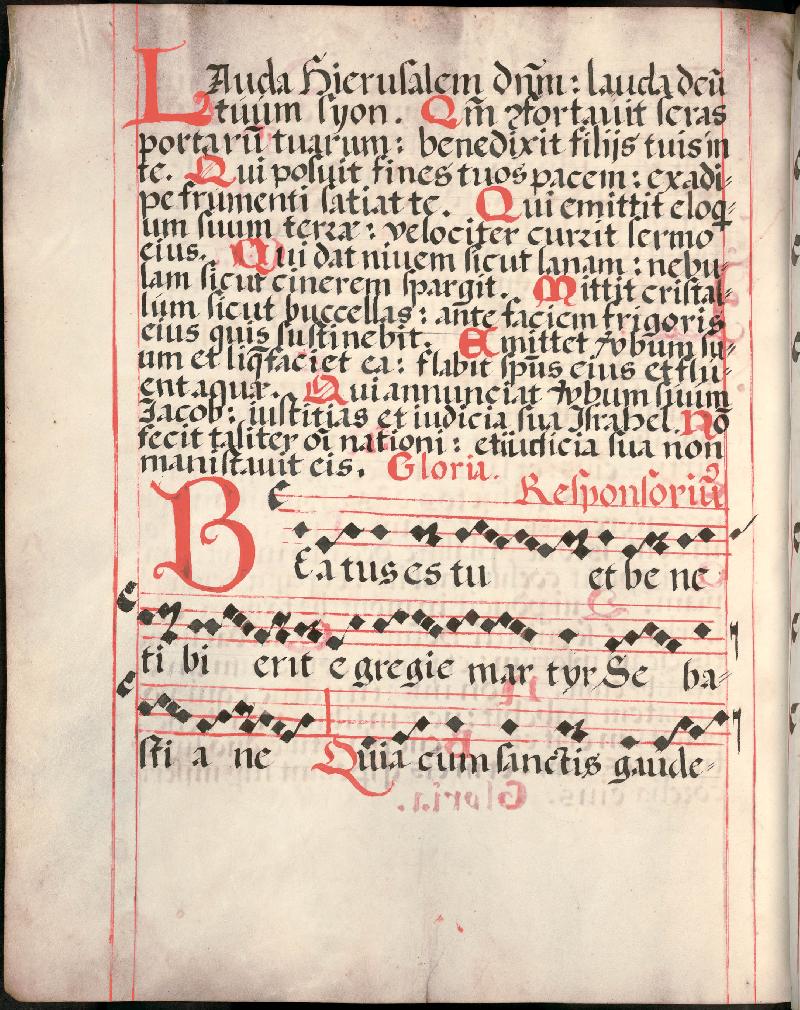 LAuda Hierusalem dn̄m: lauda deū
tuum syon. Qm̄ ꝯfortauit seras
portarū tuarum: benedixit filijs tuis in
te. Qui posuit fines tuos pacem: ex adi-
pe frumenti satiat te. Qui emittit eloq-
um suum terræ: velociter currit sermo
eius. Qui dat niuem sicut lanam: nebu-
lam sicut cinerem spargit. Mittit cristal-
lum sicut buccellas: ante faciem frigoris
eius quis sustinebit. Emittet ꝟbum su-
um et liq̄faciet ea: flabit sp̄us eius et flu-
ent aquæ. Qui annunciat ꝟbum suum
Jacob: iustitias et iudicia sua Israhel. Nō
fecit taliter oī nationi: et iudicia sua non
manifestauit eis. Gloria.
Responsoriū
Beatus es tu et be ne
ti bi erit e gregie mar tyr Se ba-
sti a ne Quia cum sanctis gaude-